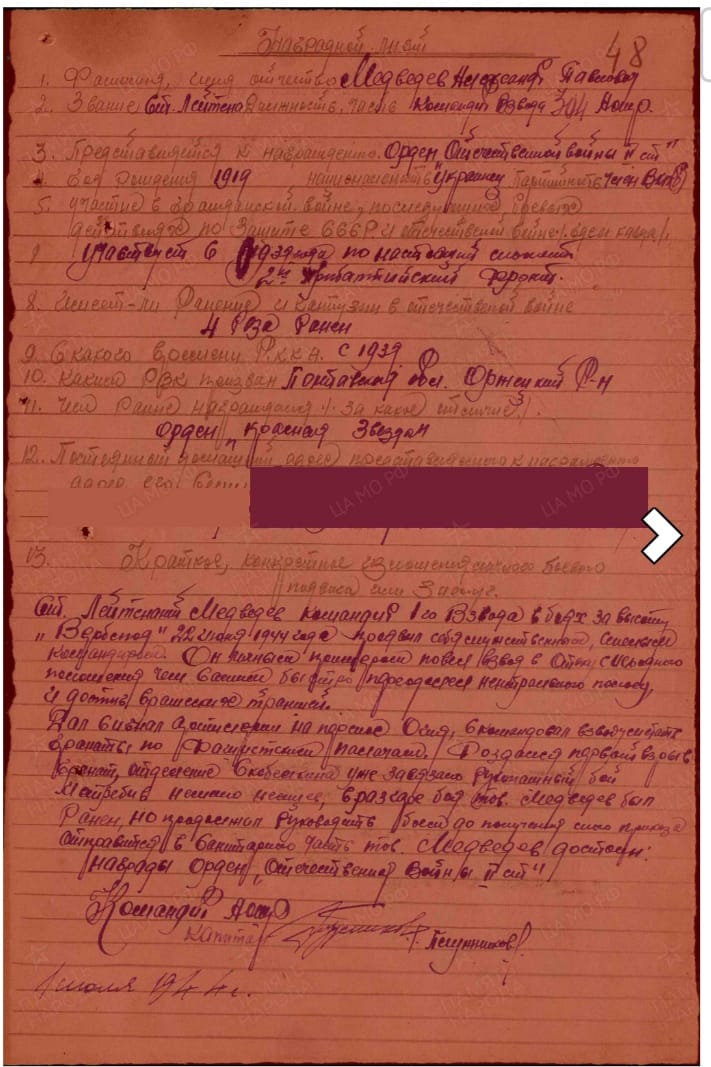 48
Наградной лист
1. Фамилия, имя отчество Медведев Александр Павлович
2. Звание Ст. Лейтена Должность, часть Командир Взвода 304 Аошр.
3. Представляется к награждению Орден Отечественной войны II ст"
4. Год рождения 1919 национальность Украинец Партийность член ВКП(б)
5. участие в гражданской войне, последующие боевые
действиях по Защите СССР и отечественной войне
участвует с по настоящий
2й Прибалтийский Фронт.
8. Имеет-ли Ранения и Контузии в отечественной войне
4 Раза Ранен
9. С какого времени Р.К.К.А. с 1939
10. Каким РВК призван Полтавской обл. Оржицкий Р-н
11. Чем Ранее награждался /: за какое отличие:/.
орден Красная Звезда
12. Постоянный домашний адрес представляемого к награждению
адрес его
13. Краткое, конкретное изложение личного боевого
подвига или Заслуг.
Ст. Лейтенант Медведев командир 1го Взвода в боях за высоту
" 22 июня 1944 года проявил себя смелым
командиром. Он личным примером повел взвод в Атаку с исходного
положения чем самым быстро преодолел нейтральную полосу,
и достиг вражеские траншеи.
Дал сигнал Артиллерии на перенос Огня, скомандовал взводу
гранаты по Фашистским палачам. Раздался первый взрыв
гранат, отделение уже завязало рукопашный бой
немало немцев, в разгаре боя тов. Медведев был
Ранен, но продолжал Руководить боем до получения приказа
отправится в Санитарную часть тов. Медведев достоин:
награды Орден „Отечественной Войны II ст"
Командир Аошр
капитан
1 июля 1944 г.
ЦА МО РФ
ПАМЯТЬ НАРОДА